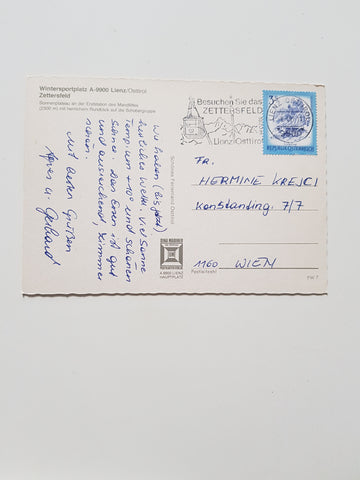 Wintersportplatz A-9900 Lienz/Osttirol
Zettersfeld
Sonnenplateau an der Endstation des Mandlliftes
(2300 m) mit herrlichem Rundblick auf die Schobergruppe
Wir haben (bis jetzt)
herrliches Wetter. Viel Sonne
Temp. um +10° und schönen
Schnee. Das Essen ist gut
und ausreichend, Zimmer
Mit besten Grüßen
Agnes u. Gerhard
Schönes Ferienland Osttirol
A 9900 LIENZ
HAUPTPLATZ
Besuchen Sie das
ZETTERSFELD
Lienz/Osttirol
REPUBLIK ÖSTERREICH
FR.
HERMINE KREJCI
Konstanting. 7/7
1160 WIEN
Postleitzahl